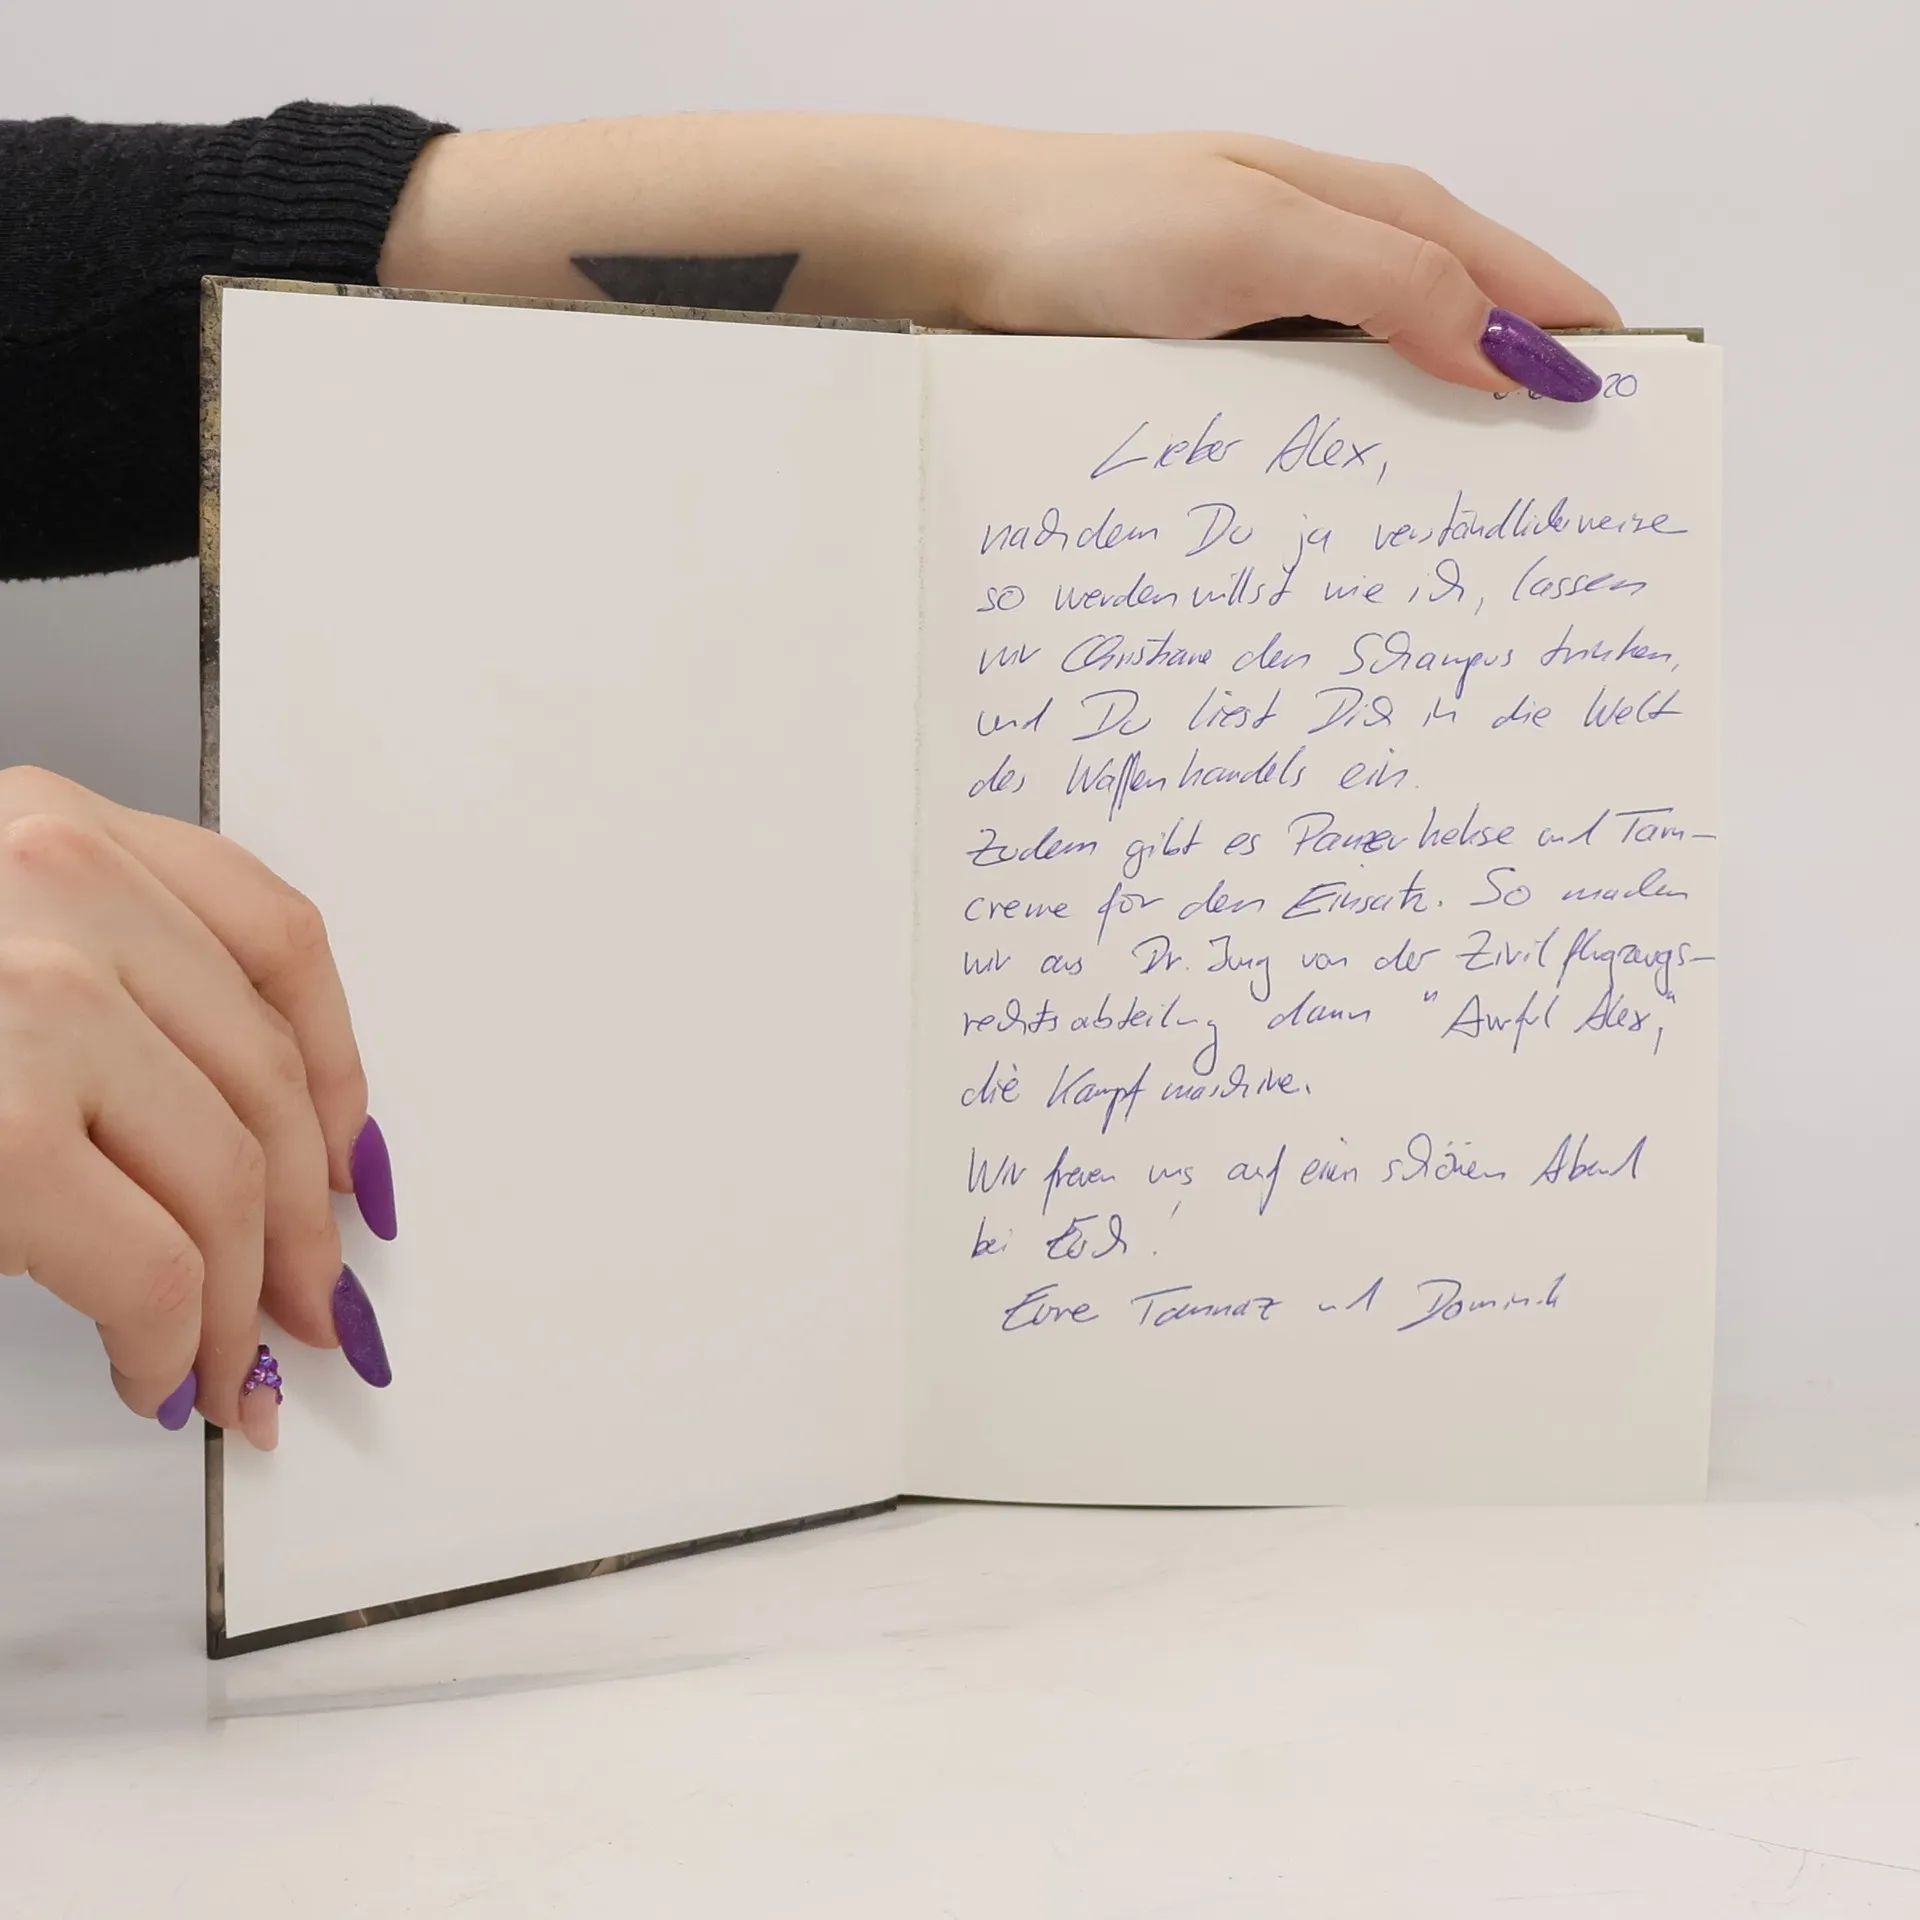 20
Lieber Alex,
nachdem Du ja verständlicherweise
so werden willst wie ich, lassen
wir Christiane den Schampus trinken,
und Du liest Dich in die Welt
des Waffenhandels ein.
Zudem gibt es Panzerkekse und Tarn-
creme für den Einsatz. So machen
wir aus Dr. Jung von der Zivilflugzeugs-
rechtsabteilung dann "Awful Alex,"
die Kampfmaschine.
Wir freuen uns auf einen schönen Abend
bei Euch!
Eure Tannaz und Dominik